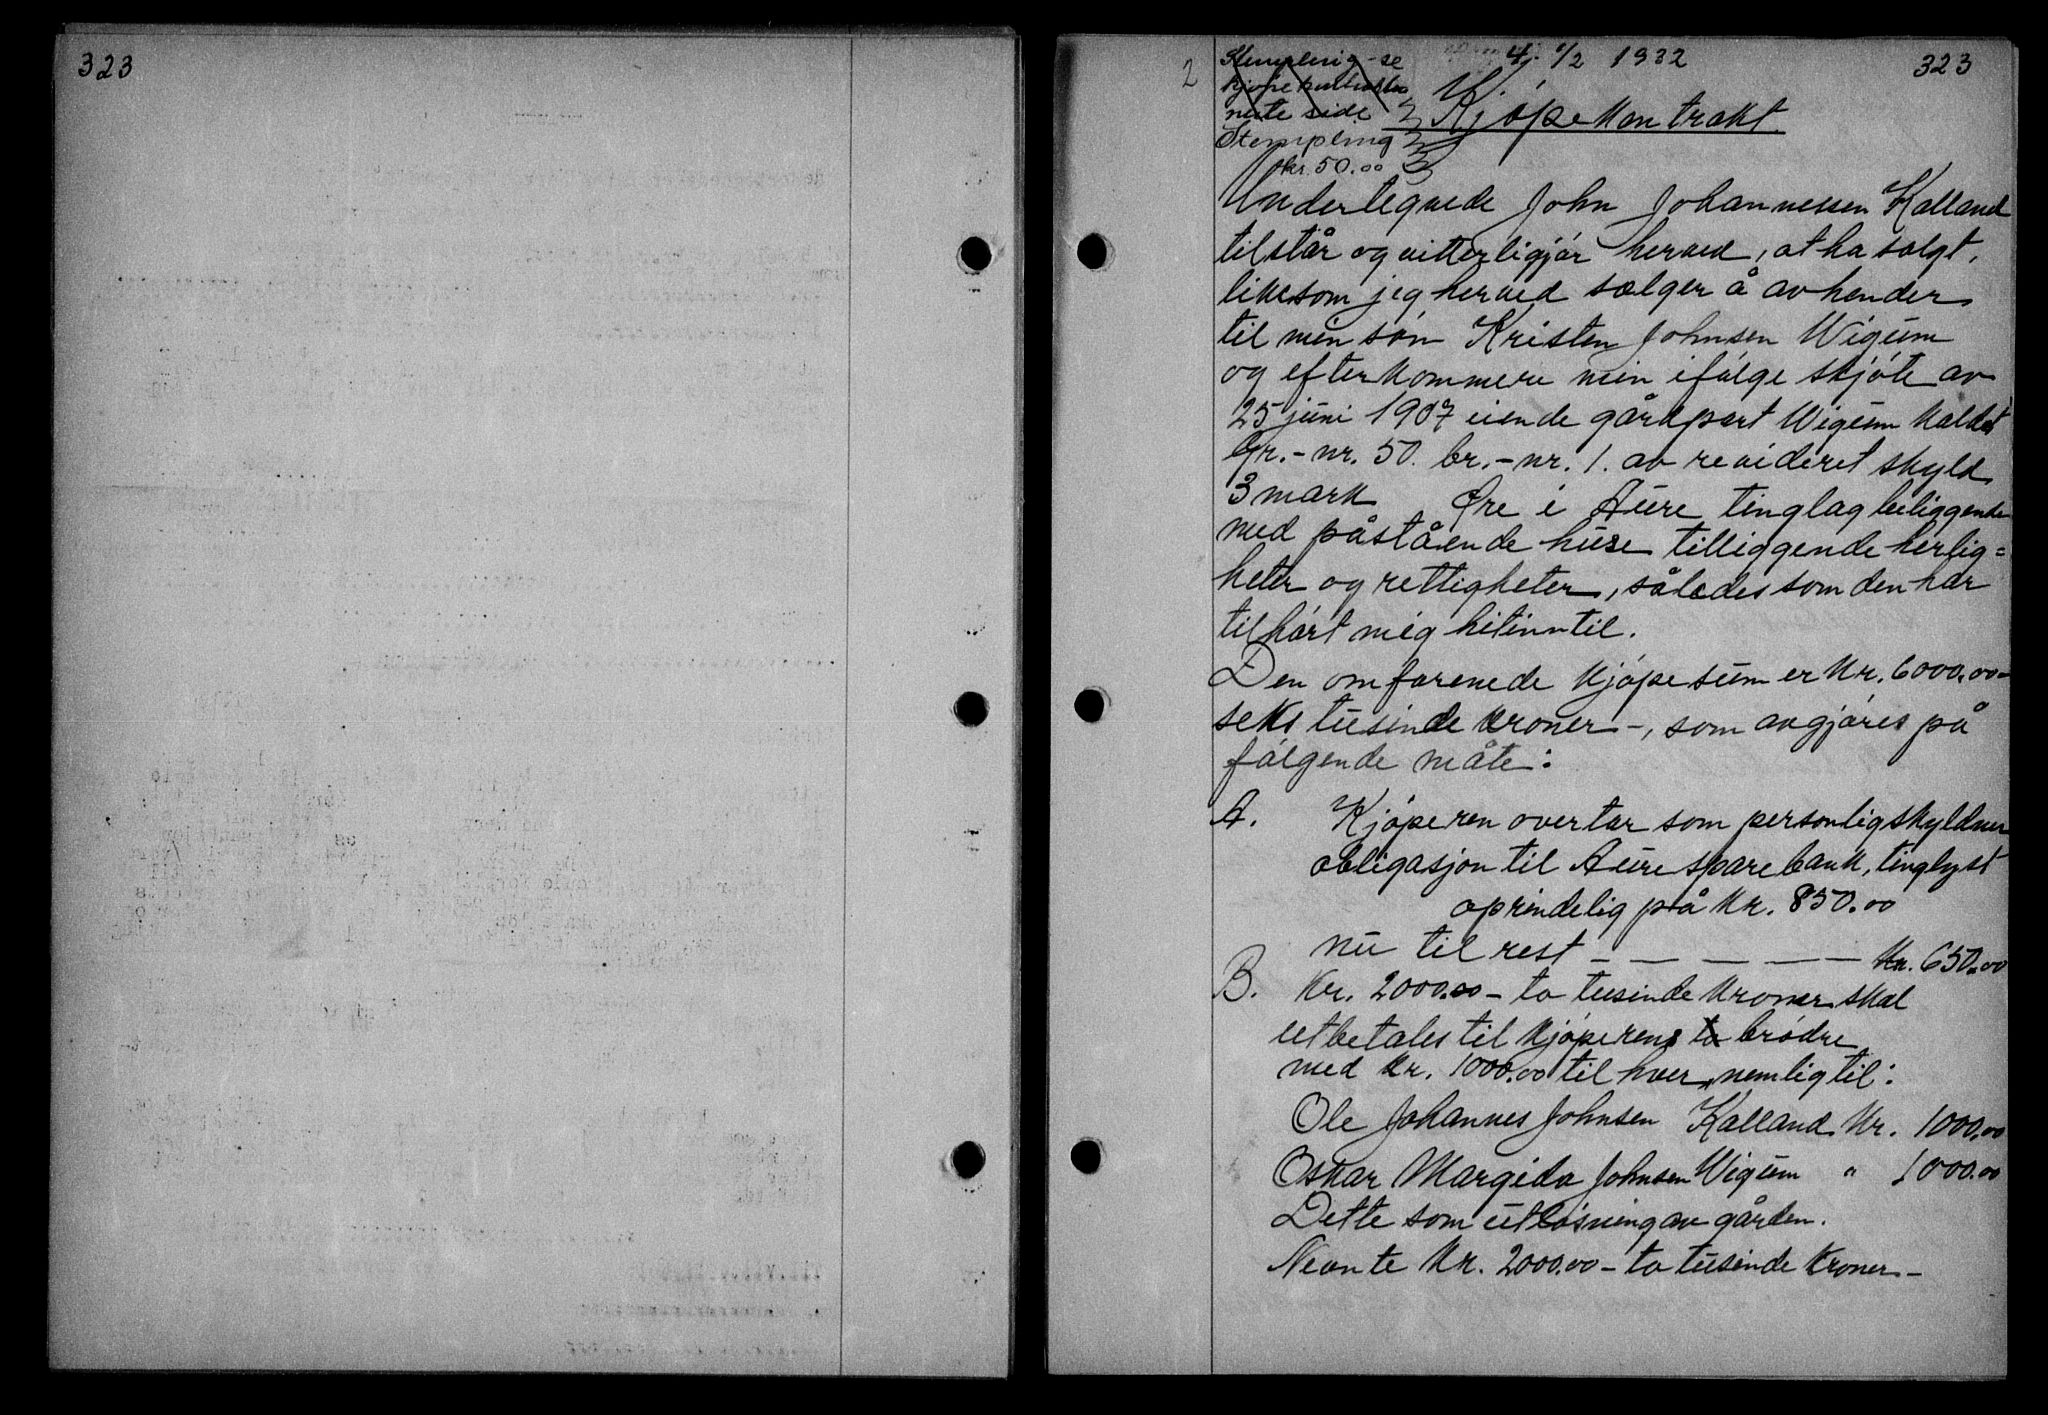 323
323
2
4. 1/2 1932
Stempling - se
kjøpekontrakten
neste side
Stempling
kr. 50.00
Kjøpekontrakt
Undertegnede John Johannessen Kalland
tilstår og vitterligjør herved, at ha solgt,
likesom jeg herved sælger å avhender
til min søn Kristen Johnsen Wigum
og efterkommere min ifølge skjøte av
25 juni 1907 eiende gårdpart Wigum kaldet
Gr.-nr. 50. br.-nr. 1. av revideret skyld
3 mark Øre i Aure tinglag beliggende
med påstående huse tilliggende herlig=
heter og rettigheter, således som den har
tilhørt mig hitinntil.
Den omforenede kjøpesum er kr. 6000.00-
seks tusinde kroner -, som avgjøres på
følgende måte:
A. Kjøperen overtar som personlig skyldner
obligasjon til Aure sparebank, tinglyst
oprindelig på kr. 850.00
nu til rest - - - - - - kr. 650.00
B. Kr. 2000.00 - to tusinde kroner skal
utbetales til kjøperens to brødre
med kr. 1000.00 til hver, nemlig til:
Ole Johannes Johnsen Kalland kr. 1000.00
Oskar Margido Johnsen Wigum " 1000.00
Dette som utløsning av gården.
Nevnte kr. 2000.00 - to tusinde kroner -